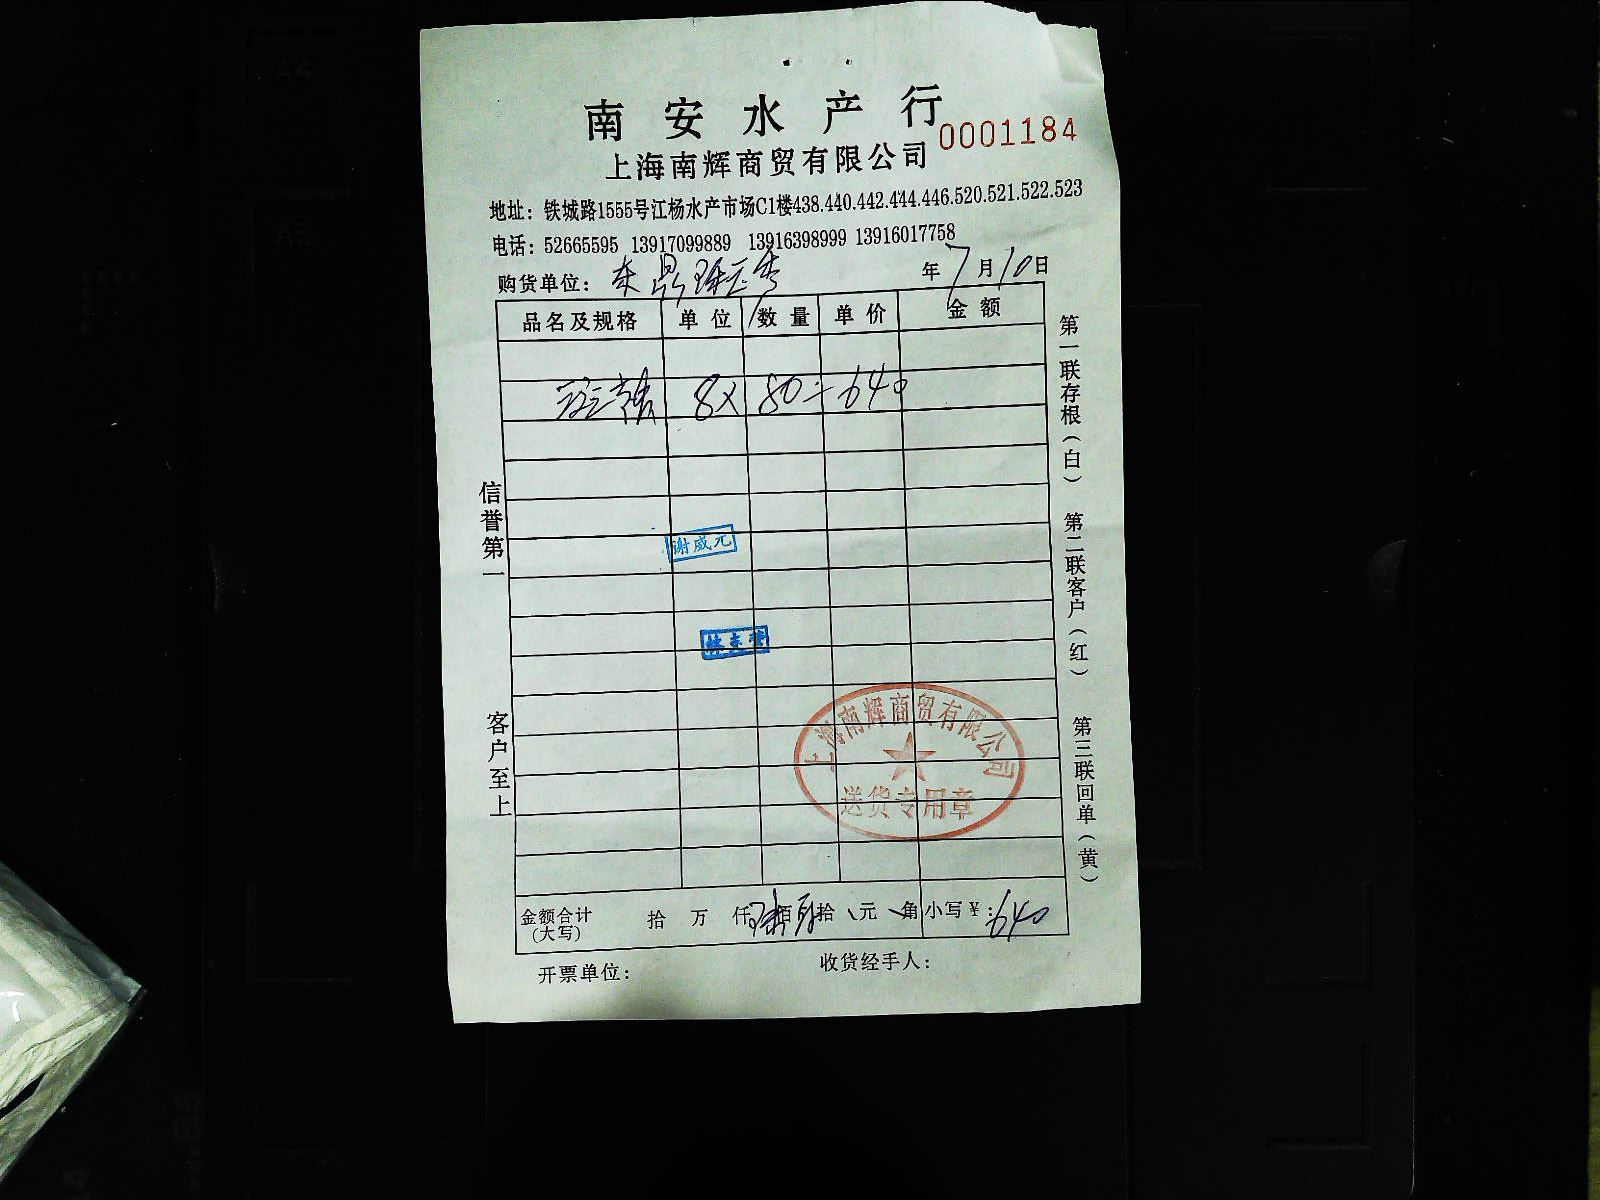 南安水产行
0001184
上海南辉商贸有限公司
地址：铁城路1555号江杨水产市场C1楼438.440.442.444.446.520.521.522.523
电话：52665595 13917099889 13916398999 13916017758
购货单位：东鼎 年7月10日
品名及规格 单位 数量 单价 金额
8× 80=640
谢威元
上海南辉商贸有限公司
送货专用章
金额合计（大写） 拾 万 仟 佰 拾 元 角 小写￥：640
开票单位： 收货经手人：
信誉第一
客户至上
第一联存根（白）
第二联客户（红）
第三联回单（黄）